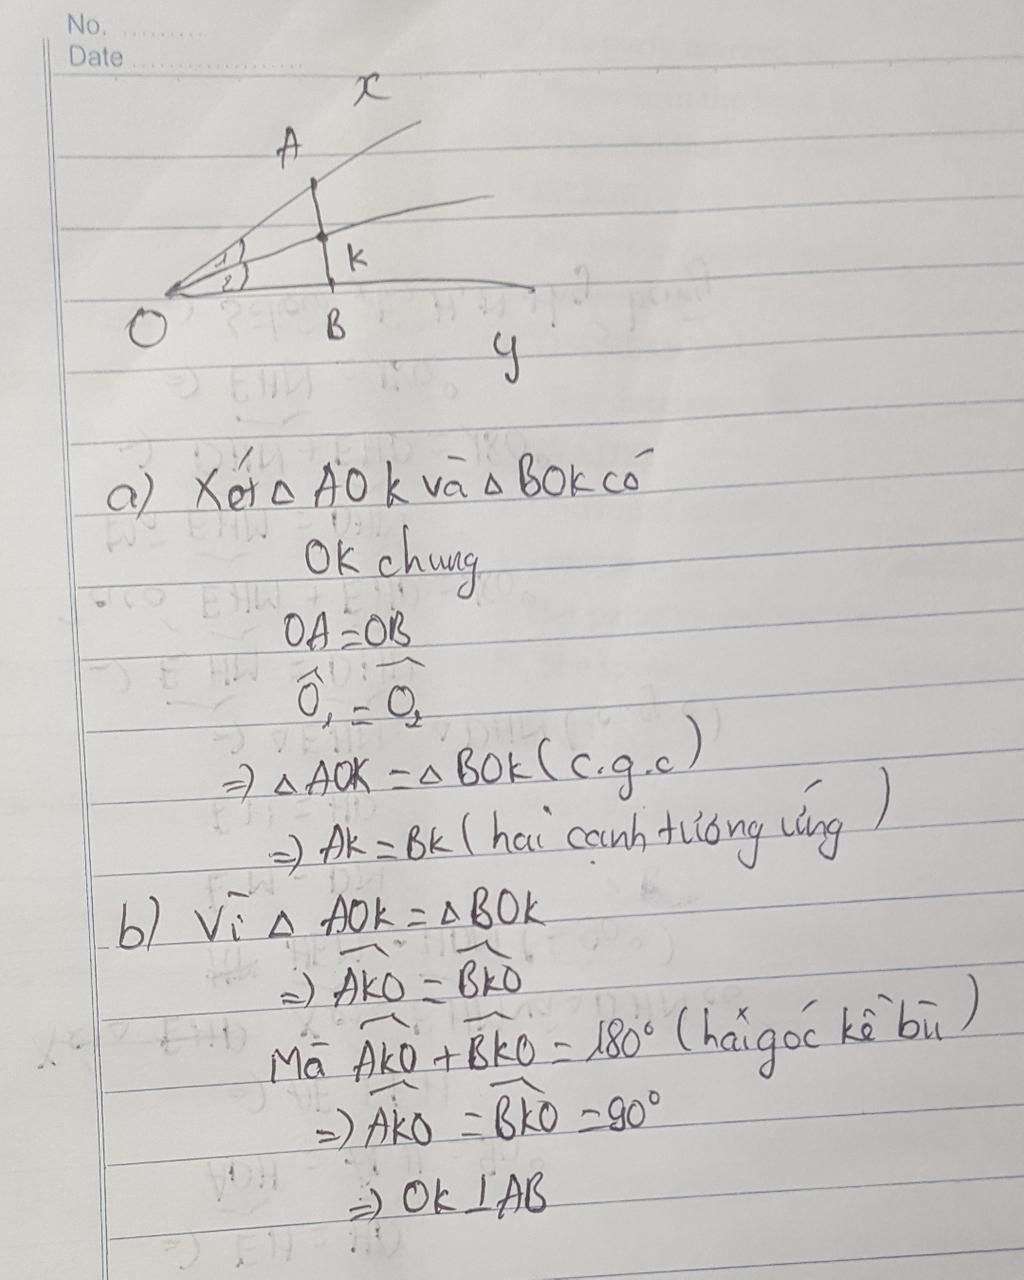 No. .........
Date ...................
x
A
1
2
K
O
B
y
a) Xét Δ AOK và Δ BOK có
OK chung
OA = OB
Ô₁ = Ô₂
=> Δ AOK = Δ BOK (c.g.c)
=> AK = BK (hai cạnh tương ứng)
b) Vì Δ AOK = Δ BOK
=> \widehat{AKO} = \widehat{BKO}
Mà \widehat{AKO} + \widehat{BKO} = 180° (hai góc kề bù)
=> \widehat{AKO} = \widehat{BKO} = 90°
=> OK ⊥ AB